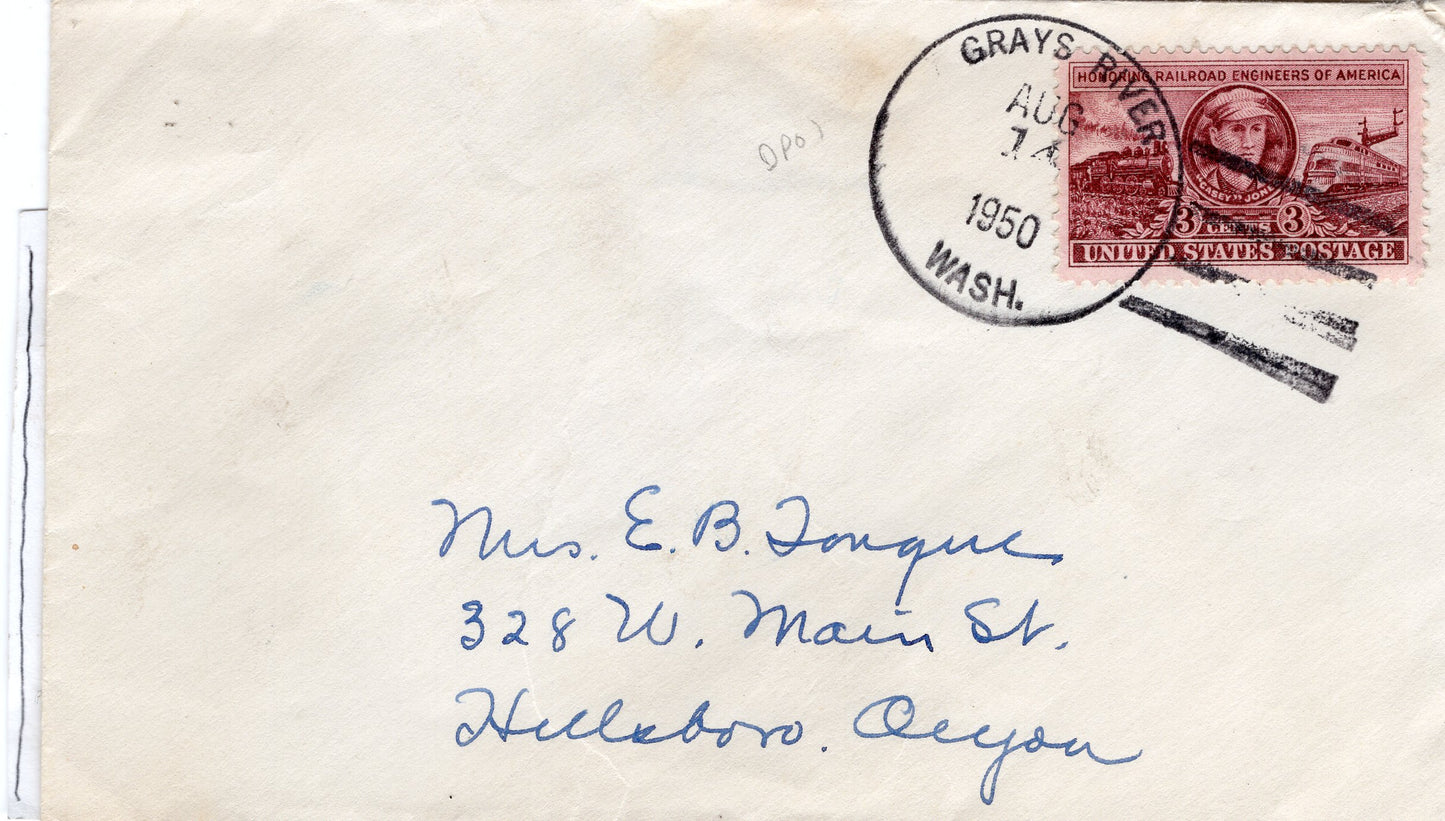 GRAYS RIVER
AUG
14
1950
WASH.
HONORING RAILROAD ENGINEERS OF AMERICA
"CASEY" JONES
3 CENTS 3
UNITED STATES POSTAGE
DPO
Mrs. E. B. Tongue
328 W. Main St.
Hillsboro. Oregon